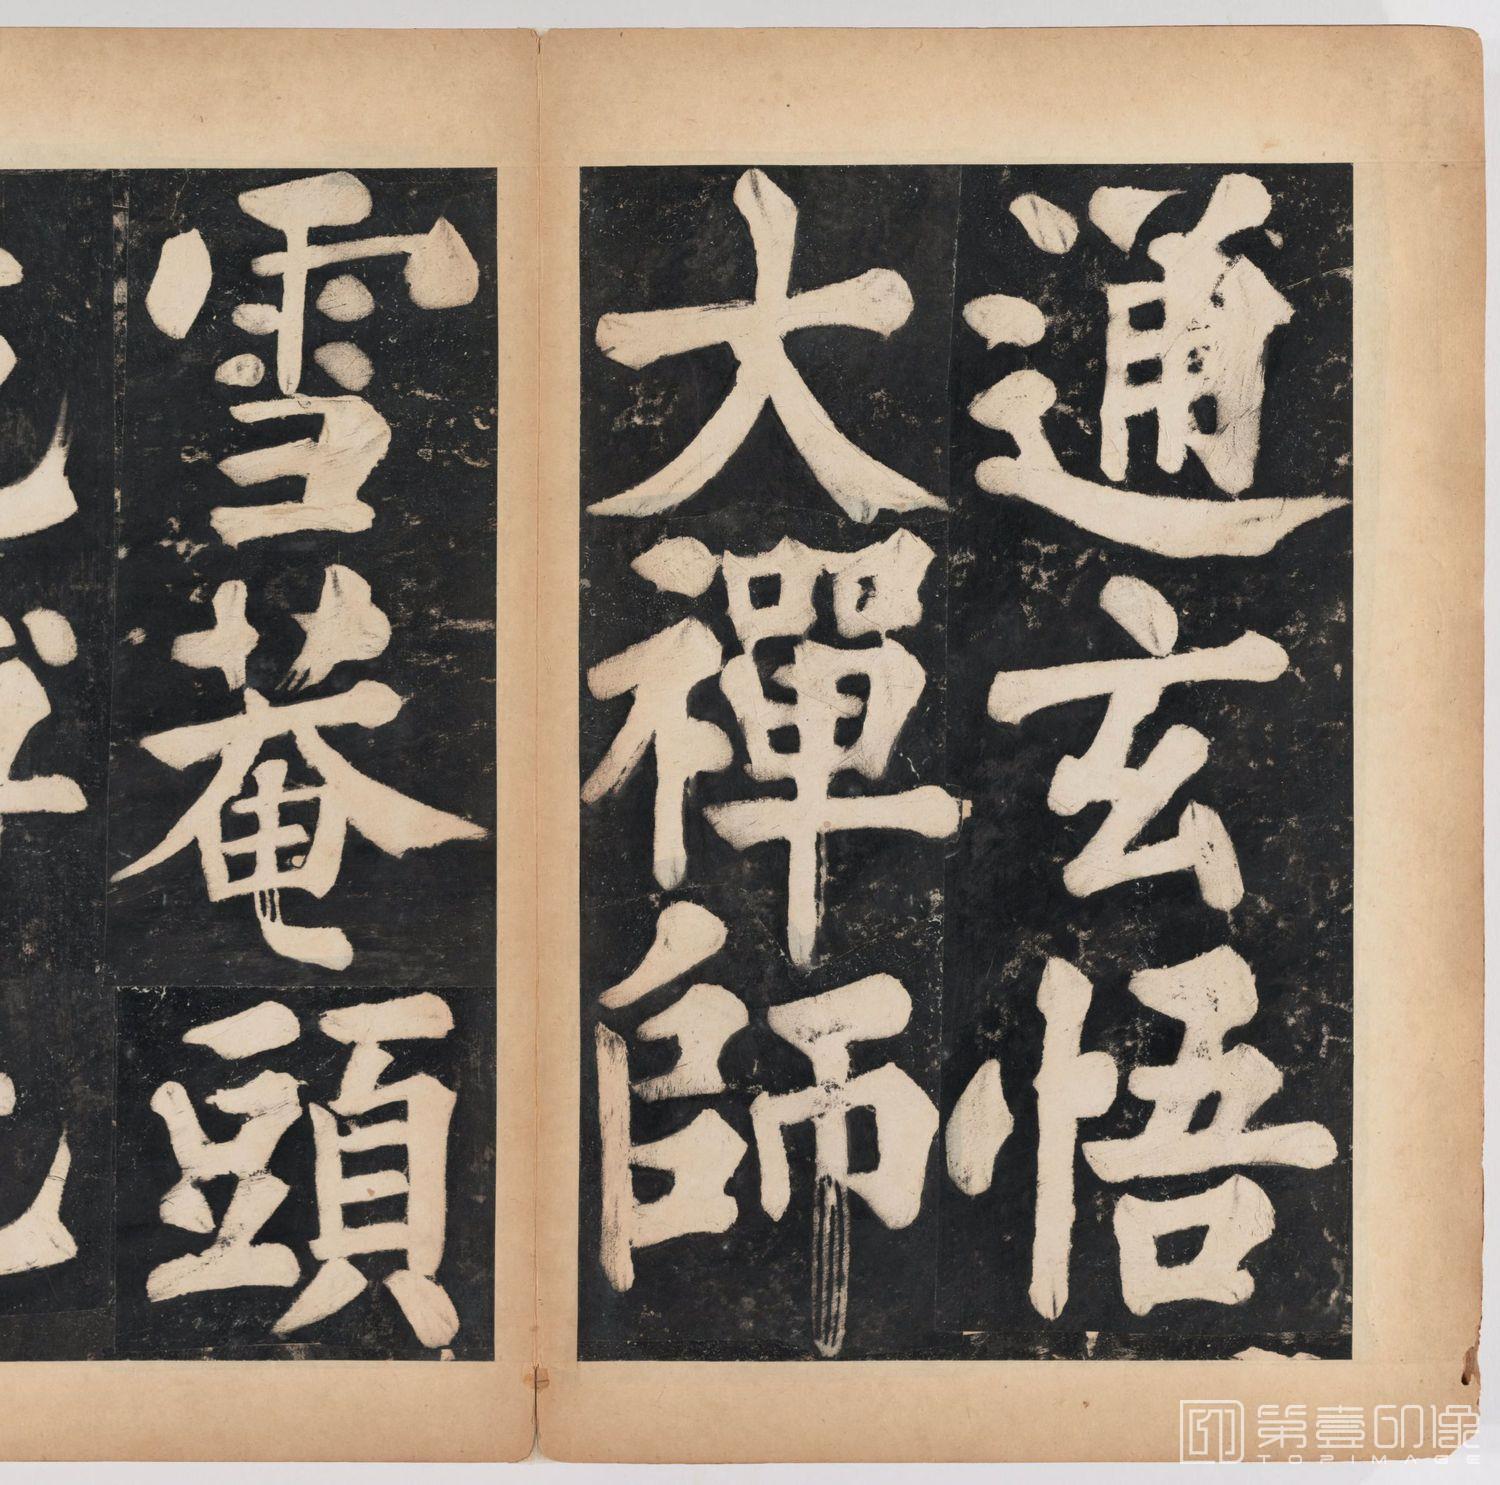 通玄悟
大禪師
雪菴頭
第壹印像
TOPIMAGE